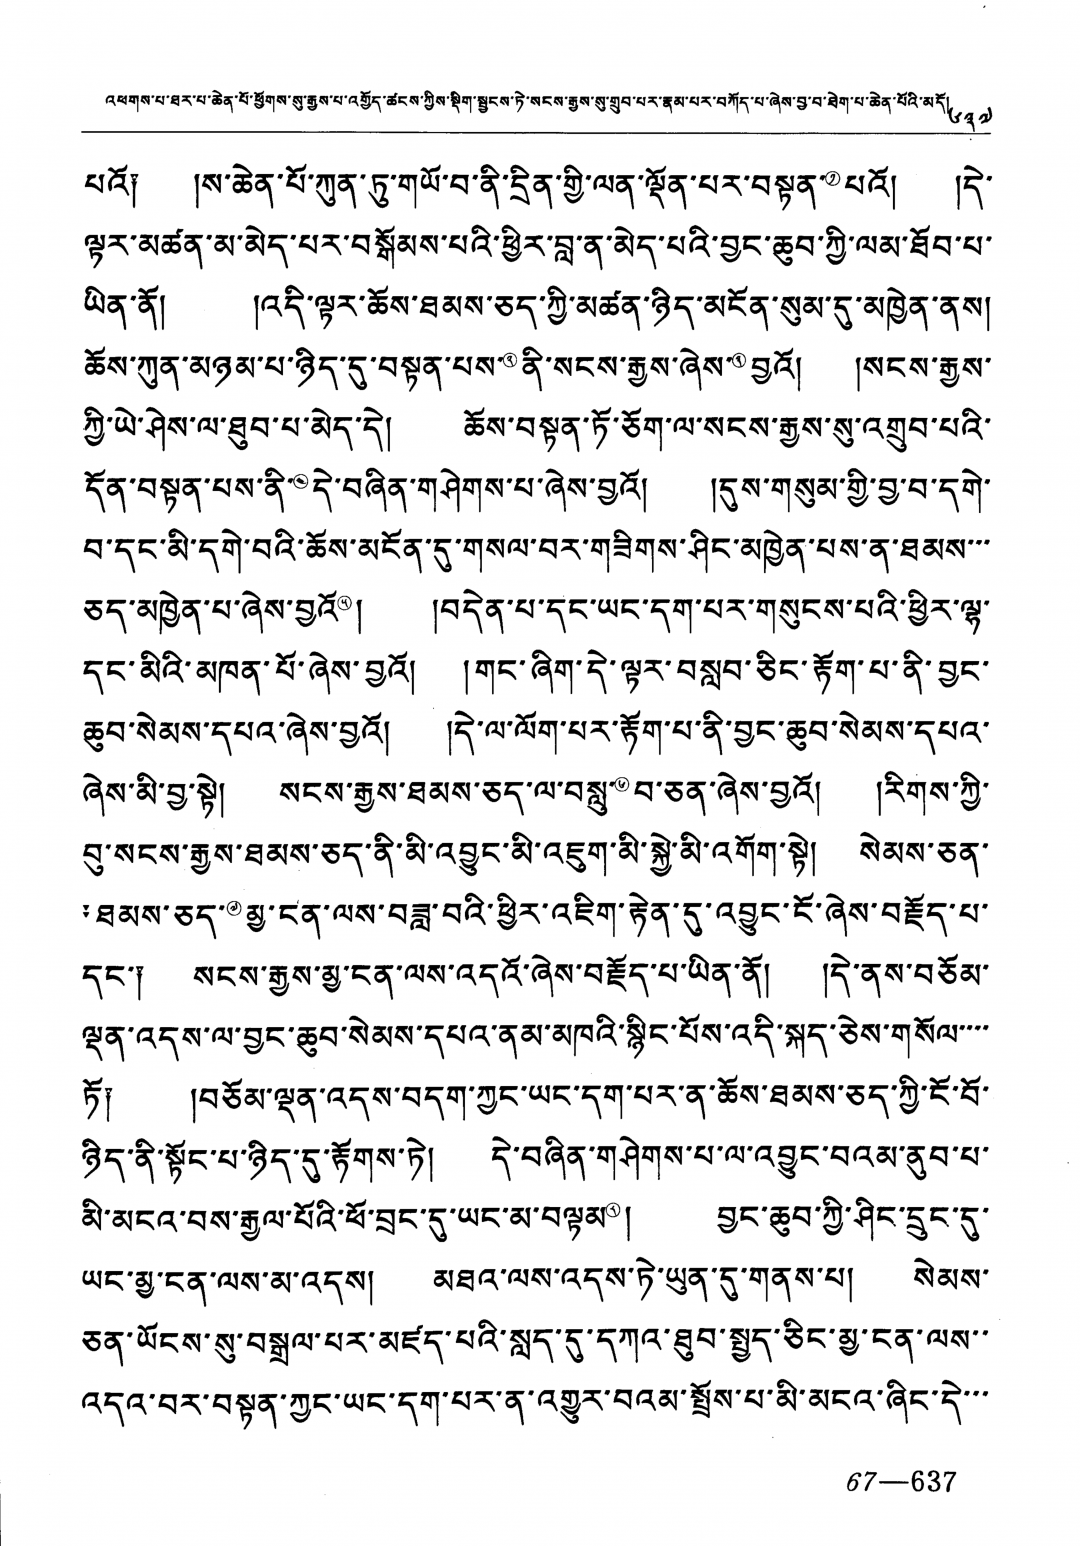 འཕགས་པ་ཐར་པ་ཆེན་པོ་ཕྱོགས་སུ་རྒྱས་པ་འགྱོད་ཚངས་ཀྱིས་སྡིག་སྦྱངས་ཏེ་སངས་རྒྱས་སུ་གྲུབ་པར་རྣམ་པར་བཀོད་པ་ཞེས་བྱ་བ་ཐེག་པ་ཆེན་པོའི་མདོ། ༦༣༧
པའོ༑ །ས་ཆེན་པོ་ཀུན་ཏུ་གཡོ་བ་ནི་དྲིན་གྱི་ལན་ལྡོན་པར་བསྟན་①པའོ། །དེ་
ལྟར་མཚན་མ་མེད་པར་བསྒོམས་པའི་ཕྱིར་བླ་ན་མེད་པའི་བྱང་ཆུབ་ཀྱི་ལམ་ཐོབ་པ་
ཡིན་ནོ། །འདི་ལྟར་ཆོས་ཐམས་ཅད་ཀྱི་མཚན་ཉིད་མངོན་སུམ་དུ་མཁྱེན་ནས།
ཆོས་ཀུན་མཉམ་པ་ཉིད་དུ་བསྟན་པས་②ནི་སངས་རྒྱས་ཞེས་③བྱའོ། །སངས་རྒྱས་
ཀྱི་ཡེ་ཤེས་ལ་ཐུབ་པ་མེད་དེ། ཆོས་བསྟན་ཏོ་ཅོག་ལ་སངས་རྒྱས་སུ་འགྲུབ་པའི་
དོན་བསྟན་པས་ནི་④དེ་བཞིན་གཤེགས་པ་ཞེས་བྱའོ། །དུས་གསུམ་གྱི་བྱ་བ་དགེ་
བ་དང་མི་དགེ་བའི་ཆོས་མངོན་དུ་གསལ་བར་གཟིགས་ཤིང་མཁྱེན་པས་ན་ཐམས་་་
ཅད་མཁྱེན་པ་ཞེས་བྱའོ⑤། །བདེན་པ་དང་ཡང་དག་པར་གསུངས་པའི་ཕྱིར་ལྷ་
དང་མིའི་མཁན་པོ་ཞེས་བྱའོ། །གང་ཞིག་དེ་ལྟར་བསླབ་ཅིང་རྟོག་པ་ནི་བྱང་
ཆུབ་སེམས་དཔའ་ཞེས་བྱའོ། །དེ་ལ་ལོག་པར་རྟོག་པ་ནི་བྱང་ཆུབ་སེམས་དཔའ་
ཞེས་མི་བྱ་སྟེ། སངས་རྒྱས་ཐམས་ཅད་ལ་བསླུ་⑥བ་ཅན་ཞེས་བྱའོ། །རིགས་ཀྱི་
བུ་སངས་རྒྱས་ཐམས་ཅད་ནི་མི་འབྱུང་མི་འཇུག་མི་སྐྱེ་མི་འགོག་སྟེ། སེམས་ཅན་
༑ཐམས་ཅད་⑦མྱ་ངན་ལས་བཟླ་བའི་ཕྱིར་འཇིག་རྟེན་དུ་འབྱུང་ངོ་ཞེས་བརྗོད་པ་
དང་༑ སངས་རྒྱས་མྱ་ངན་ལས་འདའོ་ཞེས་བརྗོད་པ་ཡིན་ནོ། །དེ་ནས་བཅོམ་
ལྡན་འདས་ལ་བྱང་ཆུབ་སེམས་དཔའ་ནམ་མཁའི་སྙིང་པོས་འདི་སྐད་ཅེས་གསོལ་་་་
ཏོ༑ །བཅོམ་ལྡན་འདས་བདག་ཀྱང་ཡང་དག་པར་ན་ཆོས་ཐམས་ཅད་ཀྱི་ངོ་བོ་
ཉིད་ནི་སྟོང་པ་ཉིད་དུ་རྟོགས་ཏེ། དེ་བཞིན་གཤེགས་པ་ལ་འབྱུང་བའམ་ནུབ་པ་
མི་མངའ་བས་རྒྱལ་པོའི་ཕོ་བྲང་དུ་ཡང་མ་བལྟམ⑧། བྱང་ཆུབ་ཀྱི་ཤིང་དྲུང་དུ་
ཡང་མྱ་ངན་ལས་མ་འདས། མཐའ་ལས་འདས་ཏེ་ཡུན་དུ་གནས་པ། སེམས་
ཅན་ཡོངས་སུ་བསྒྲལ་པར་མཛད་པའི་སླད་དུ་དཀའ་ཐུབ་སྤྱད་ཅིང་མྱ་ངན་ལས་་
འདའ་བར་བསྟན་ཀྱང་ཡང་དག་པར་ན་འགྱུར་བའམ་སྤྲོས་པ་མི་མངའ་ཞིང་དེ་་་
67—637